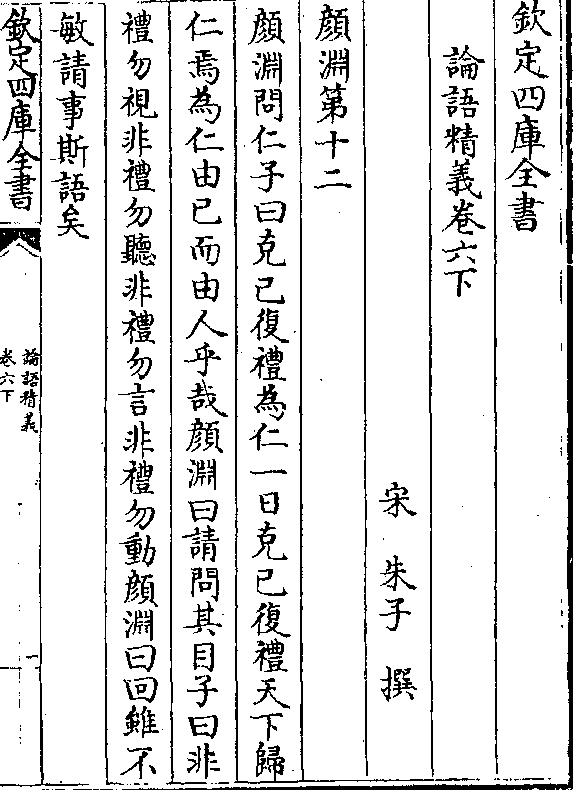 欽定四庫全書
論語精義卷六下
宋 朱子 撰
顔淵第十二
顔淵問仁子曰克已復禮為仁一日克已復禮天下歸
仁焉為仁由已而由人乎哉顔淵曰請問其目子曰非
禮勿視非禮勿聽非禮勿言非禮勿動顔淵曰回雖不
敏請事斯語矣
欽定四庫全書
論語精義
卷六下
一